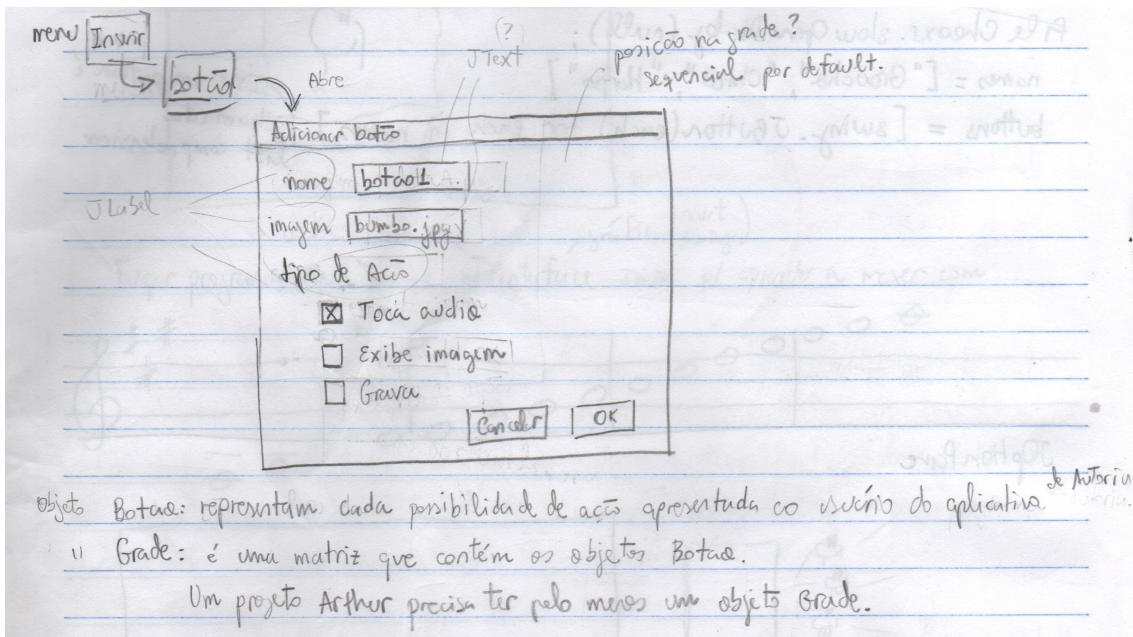 menu Inserir
botão
Abre
(?)
JText
posição na grade?
sequencial por default.
Adicionar botão
nome botao1
JLabel
imagem bumbo.jpg
tipo de Ação
Toca audio
Exibe imagem
Grava
Cancelar OK
objeto Botao: representam cada possibilidade de ação apresentada ao usuário do aplicativo de Autoria.
" Grade: é uma matriz que contém os objetos Botao.
Um projeto Arthur precisa ter pelo menos um objeto Grade.